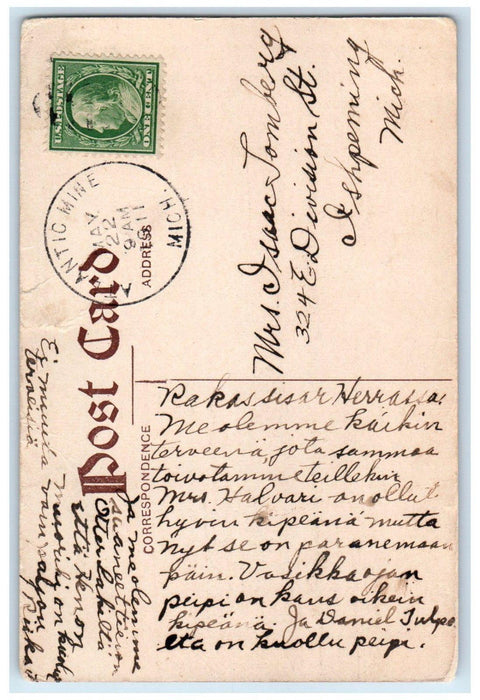 U.S. POSTAGE
ONE CENT
ANTIC MINE
MAY
22
9 AM
1911
MICH.
Post Card
ADDRESS
CORRESPONDENCE
Mrs. Isaac Tomberg
324 E. Division St.
Ishpeming
Mich.
Rakas sisar Herrassa!
Me olemme kaikin
terveenä jota sammaa
toivotamme teillekin
Mrs. Halvari on ollut
hyvin kipeänä mutta
nyt se on paranemaan
päin.
peipi on kans oikein
kipeänä. Ja Daniel
lta on kuollu peipi.
Ja me olemme
että Henon
on
Ej muuta
vain
terveisiä